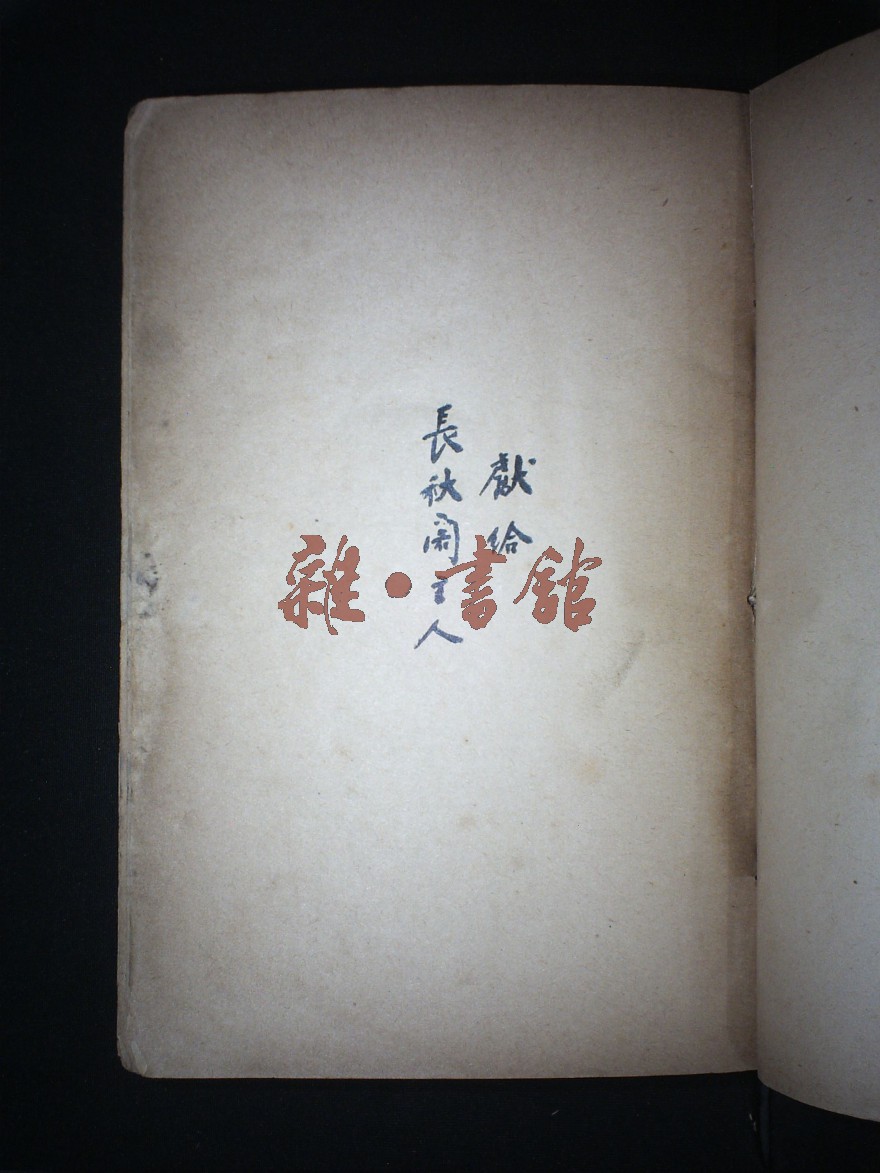 獻給
長秋閣主人
雜·書館